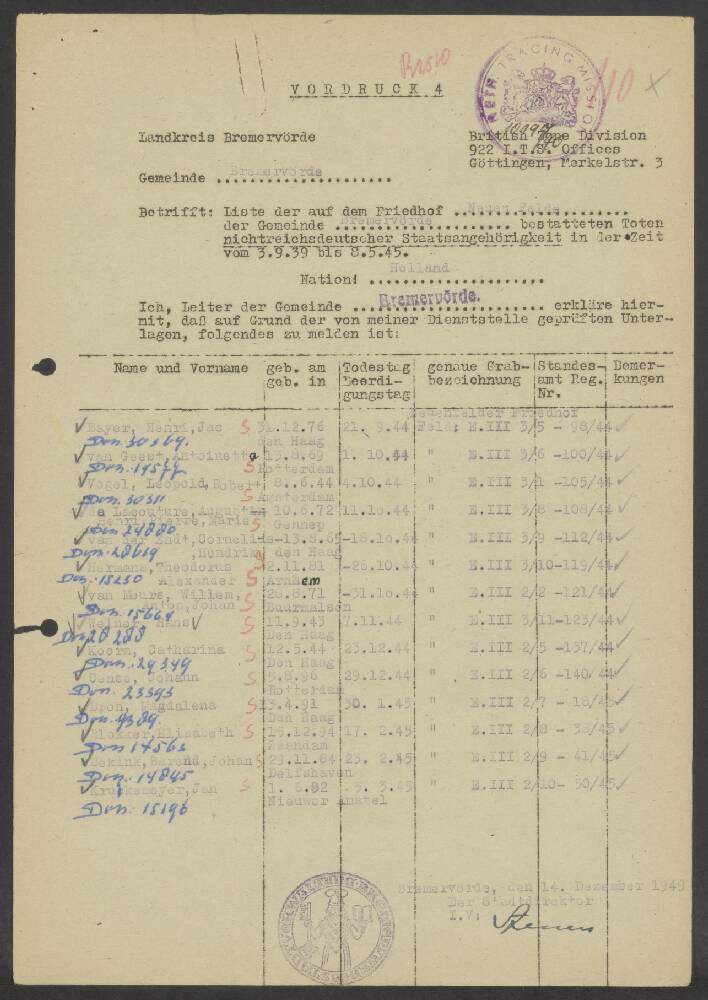 R2510
VORDRUCK 4
BRTN. TRACING MISSION
Landkreis Bremervörde
British Zone Division
922 I.T.S. Offices
Göttingen, Merkelstr. 3
Gemeinde Bremervörde
Betrifft: Liste der auf dem Friedhof Neuen Felde
der Gemeinde Bremervörde bestatteten Toten
nichtreichsdeutscher Staatsangehörigkeit in der Zeit
vom 3.9.39 bis 8.5.45.
Nation: Holland
Ich, Leiter der Gemeinde Bremervörde. erkläre hier-
mit, daß auf Grund der von meiner Dienststelle geprüften Unter-
lagen, folgendes zu melden ist:
Name und Vorname geb. am Todestag genaue Grab- Standes- Bemer-
geb. in Beerdi- bezeichnung amt Reg. kungen
gungstag Nr.
Neuenfelder Friedhof
Bayer, Henri, Jac S 31.12.76 21. 9.44 Feld: E.III 3/5 - 98/44
Don. 30169. den Haag
van Geest, Antoinetta 13.8.69 1. 10.44 " E.III 3/6 -100/44
Don. 19577 S Rotterdam
Vogel, Leopold, Robert 8..6.44 4.10.44 " E.III 3/1 -105/44
Don. 30311 S Amsterdam
de Lacouture, Augustin 10.6.72 11.10.44 " E.III 3/8 -108/44
Henri, Pierre, Marie S Gennep
Don 24880
van der Endt, Cornelis -13.8.65 -18.10.44 " E.III 3/9 -112/44
Don. 28619 , Hendrik den Haag
Hermans, Theodorus 2.11.81 -26.10.44 " E.III 3/10-119/44
Don. 15250 Alexander S Arnhem
van Meurs, Willem, 28.8.71 -31.10.44 " E.III 2/2 -121/44
Anton, Johan S Buurmalsen
Don. 15664
Weiner Hans S 11.9.43 7.11.44 " E.III 3/11-123/44
Don 28288 Den Haag
Koorn, Catharina S 12.5.44 23.12.44 " E.III 2/5 -137/44
Don. 29349 Den Haag
Cense, Johann S 5.8.96 29.12.44 " E.III 2/6 -140/44
Don. 23393 Rotterdam
Bron, Magdalena S 13.4.91 30. 1.45 " E.III 2/7 - 18/45
Don. 9389. Den Haag
Blokker, Elisabeth S 15.12.94 17. 2.45 " E.III 2/8 - 38/45
Don 14563 Zaandam
Bekink, Barend, Johan S 23.11.84 23. 2.45 " E.III 2/9 - 41/45
Don. 14845 Delfshaven
Kruikemeyer, Jan S 1. 6.82 -9. 3.45 " E.III 2/10- 50/45
Don: 15196 Nieuwer Amstel
Bremervörde, den 14. Dezember 1949
Der Stadtdirektor
I.V: